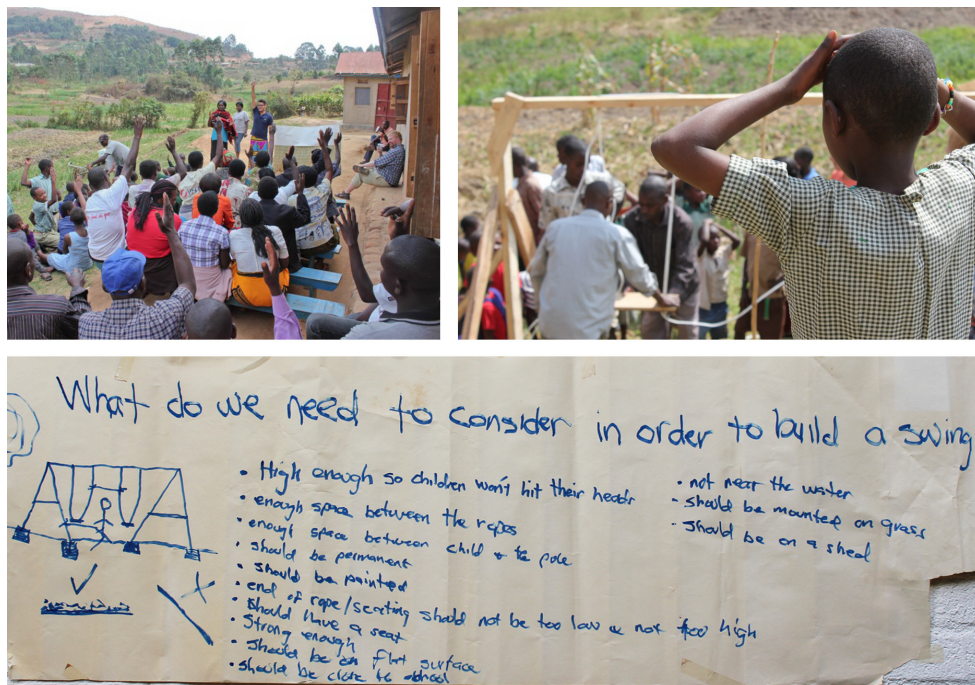 What do we need to consider in order to build a swing
• High enough so children won't hit their heads
• enough space between the ropes
• enough space between child & the pole
• should be permanent
• should be painted
• end of rope/seating should not be too low & not too high
• should have a seat
• Strong enough
• should be on flat surface
• should be close to school
• not near the water
• should be mounted on grass
• should be on a shed